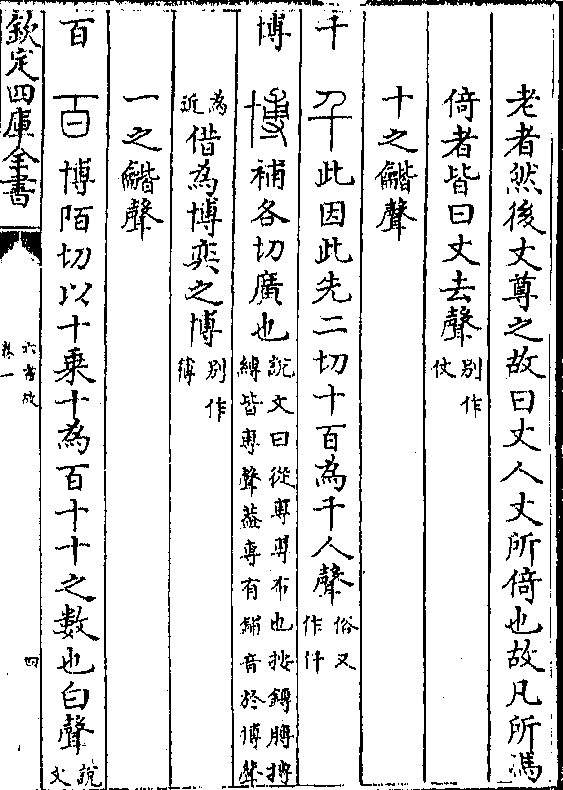 老者然後丈尊之故曰丈人丈所倚也故凡所馮
倚者皆曰丈去聲別作仗
十之龤聲
千 此因此先二切十百為千人聲俗又作仟
博 補各切廣也說文曰從尃尃布也按鎛膊搏縛皆尃聲葢尃有鋪音於博聲
為近借為博奕之博別作簙
一之龤聲
百 博陌切以十乗十為百十十之數也白聲說文
欽定四庫全書
六書故
卷一
四